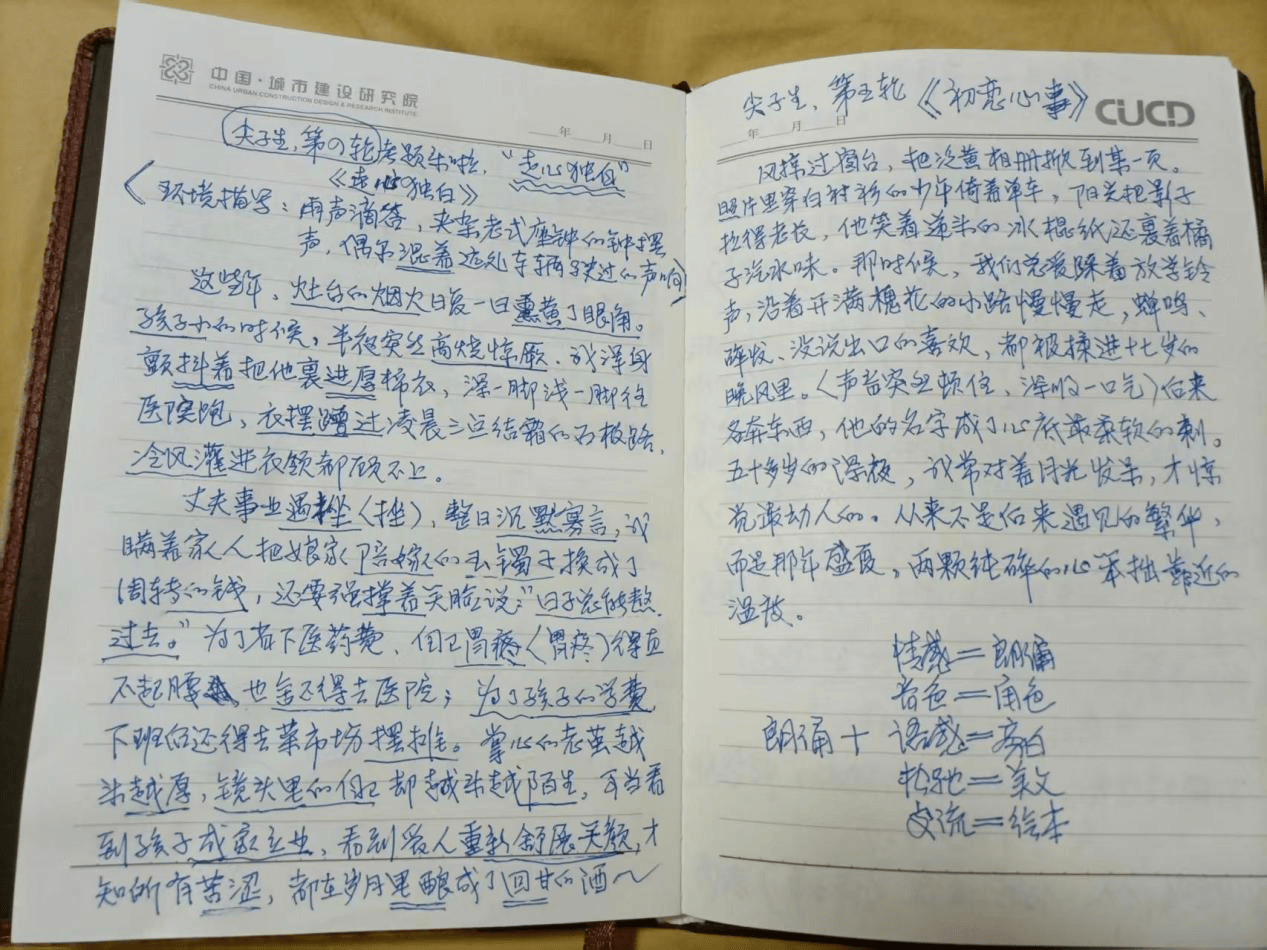 中国·城市建设研究院
CHINA URBAN CONSTRUCTION DESIGN & RESEARCH INSTITUTE
年 月 日
尖子生，第四轮考题来啦，“走心独白”
《走心独白》
〈环境描写：雨声滴答，夹杂老式座钟的钟摆
声，偶尔混着远处车辆驶过的声响〉
这些年，灶台的烟火日复一日熏黄了眼角。
孩子小的时候，半夜突然高烧惊厥，我浑身
颤抖着把他裹进厚棉衣，深一脚浅一脚往
医院跑，衣摆蹭过凌晨三点结霜的石板路，
冷风灌进衣领都顾不上。
丈夫事业遇挫（挫），整日沉默寡言，我
瞒着家人把娘家陪嫁的玉镯子换成了
周转的钱，还要强撑着笑脸说：“日子总能熬
过去。”为了省下医药费，自己胃疼（胃疼）得直
不起腰 也舍不得去医院；为了孩子的学费，
下班后还得去菜市场摆摊。掌心的老茧越
来越厚，镜头里的自己却越来越陌生，可当看
到孩子成家立业，看到爱人重新舒展笑颜，才
知所有苦涩，都在岁月里酿成了回甘的酒～
尖子生，第五轮《初恋心事》
CUCD
年 月 日
风掠过窗台，把泛黄相册掀到某一页。
照片里穿白衬衫的少年倚着单车，阳光把影子
拉得老长，他笑着递来的冰棍纸还裹着橘
子汽水味。那时候，我们总爱踩着放学铃
声，沿着开满槐花的小路慢慢走，蝉鸣、
碎发、没说出口的喜欢，都被揉进十七岁的
晚风里。（声音突然顿住，深吸一口气）后来
各奔东西，他的名字成了心底最柔软的刺。
五十多岁的深夜，我常对着月光发呆，才惊
觉最动人的。从来不是后来遇见的繁华，
而是那年盛夏，两颗纯碎的心笨拙靠近的
温度。
情感＝朗诵
音色＝角色
朗诵＋ 语感＝旁白
松弛＝美文
交流＝绘本